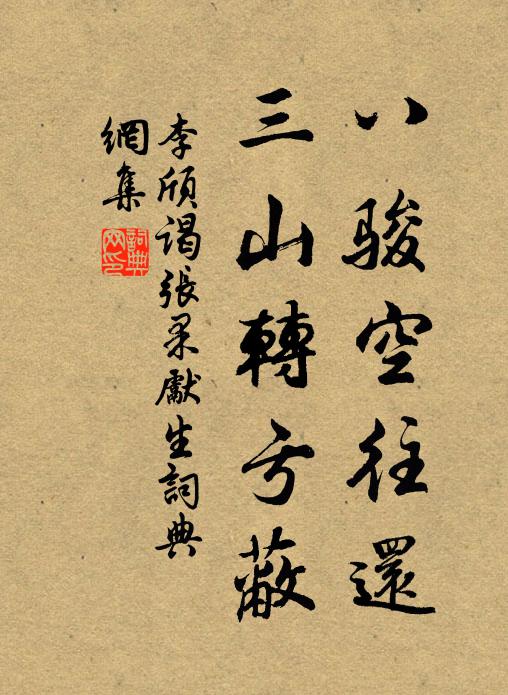 八駿空往還
三山轉亏蔽
李頎謁張果獻生詞典
網集
詞典
网印